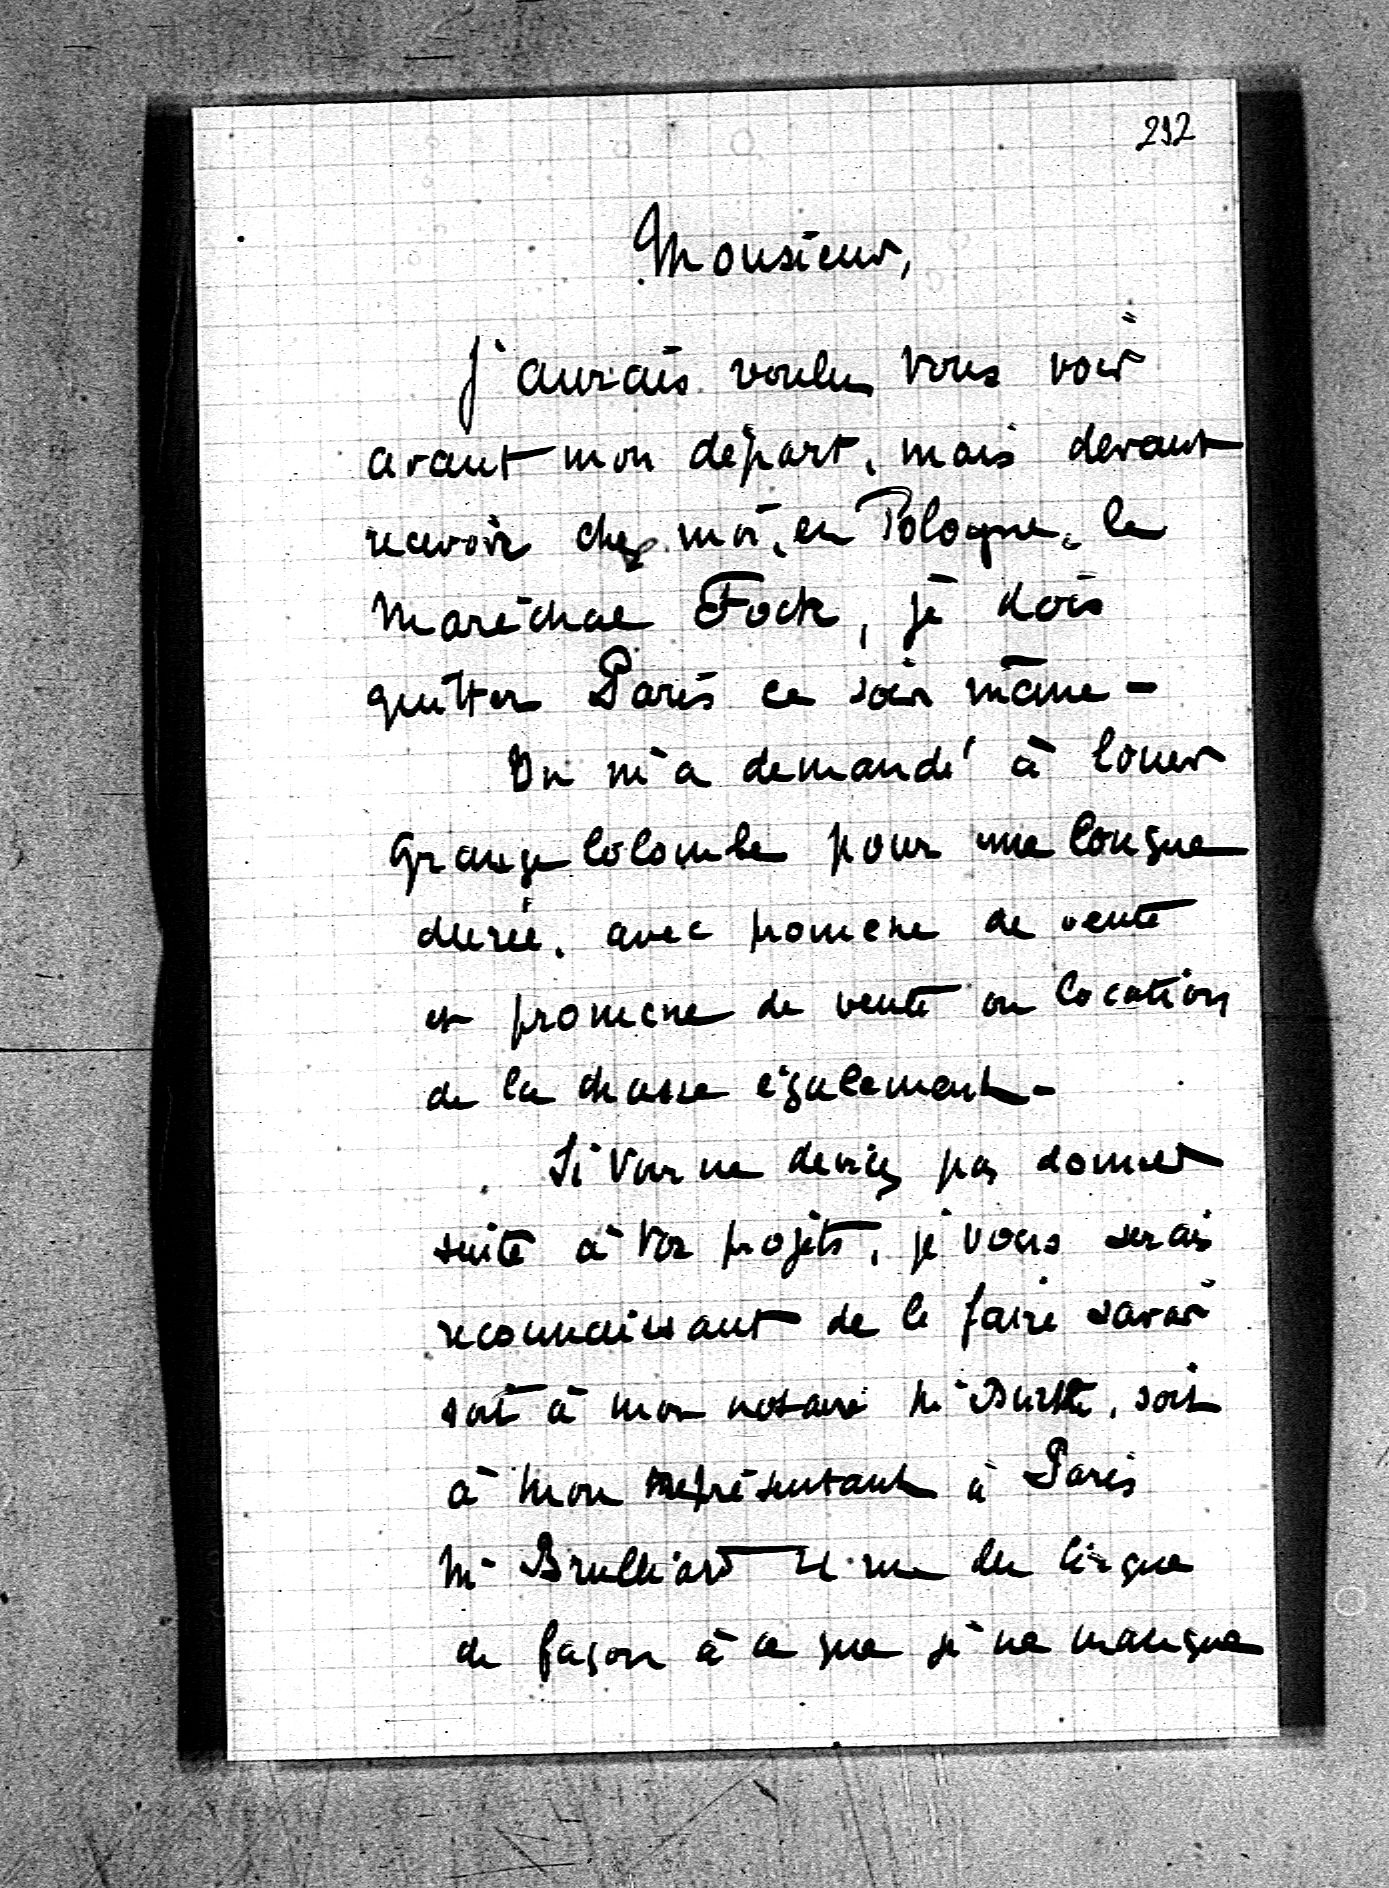 292
Monsieur,
J'aurais voulu vous voir
avant mon départ, mais devant
recevoir chez moi, en Pologne, le
Maréchal Foch, je dois
quitter Paris ce soir même -
On m'a demandé à louer
Grange Colombe pour une longue
durée, avec promesse de vente
et promesse de vente ou location
de la chasse également -
Si vous ne deviez pas donner
suite à vos projets, je vous serais
reconnaissant de le faire savoir
soit à mon notaire Me Burthe, soit
à mon représentant à Paris
Mr Brulliard rue du Cirque
de façon à ce que je ne manque